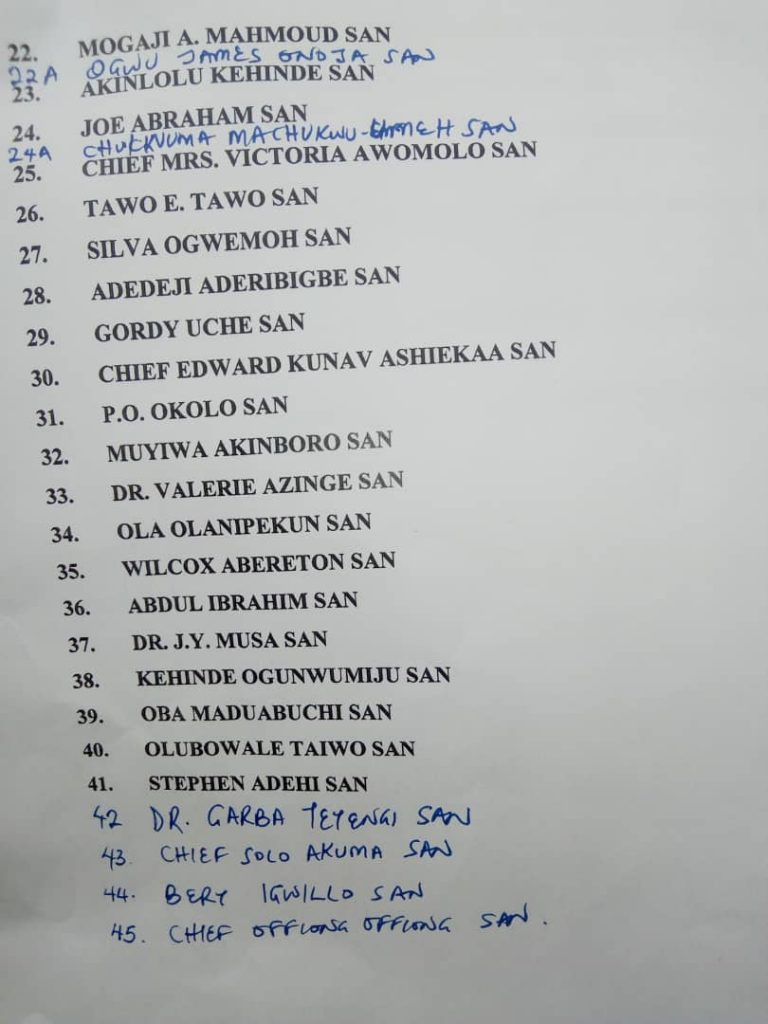 22. MOGAJI A. MAHMOUD SAN
22A OGWU JAMES ONOJA SAN
23. AKINLOLU KEHINDE SAN
24. JOE ABRAHAM SAN
24A CHUKWUMA MACHUKWU- SAN
25. CHIEF MRS. VICTORIA AWOMOLO SAN
26. TAWO E. TAWO SAN
27. SILVA OGWEMOH SAN
28. ADEDEJI ADERIBIGBE SAN
29. GORDY UCHE SAN
30. CHIEF EDWARD KUNAV ASHIEKAA SAN
31. P.O. OKOLO SAN
32. MUYIWA AKINBORO SAN
33. DR. VALERIE AZINGE SAN
34. OLA OLANIPEKUN SAN
35. WILCOX ABERETON SAN
36. ABDUL IBRAHIM SAN
37. DR. J.Y. MUSA SAN
38. KEHINDE OGUNWUMIJU SAN
39. OBA MADUABUCHI SAN
40. OLUBOWALE TAIWO SAN
41. STEPHEN ADEHI SAN
42 DR. GARBA TETENGI SAN
43. CHIEF SOLO AKUMA SAN
44. BERY IGWILLO SAN
45. CHIEF OFFIONG OFFIONG SAN.